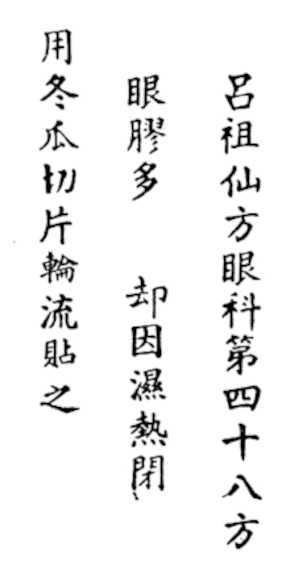 呂祖仙方眼科第四十八方
眼膠多　却因濕熱閉
用冬瓜切片輪流貼之